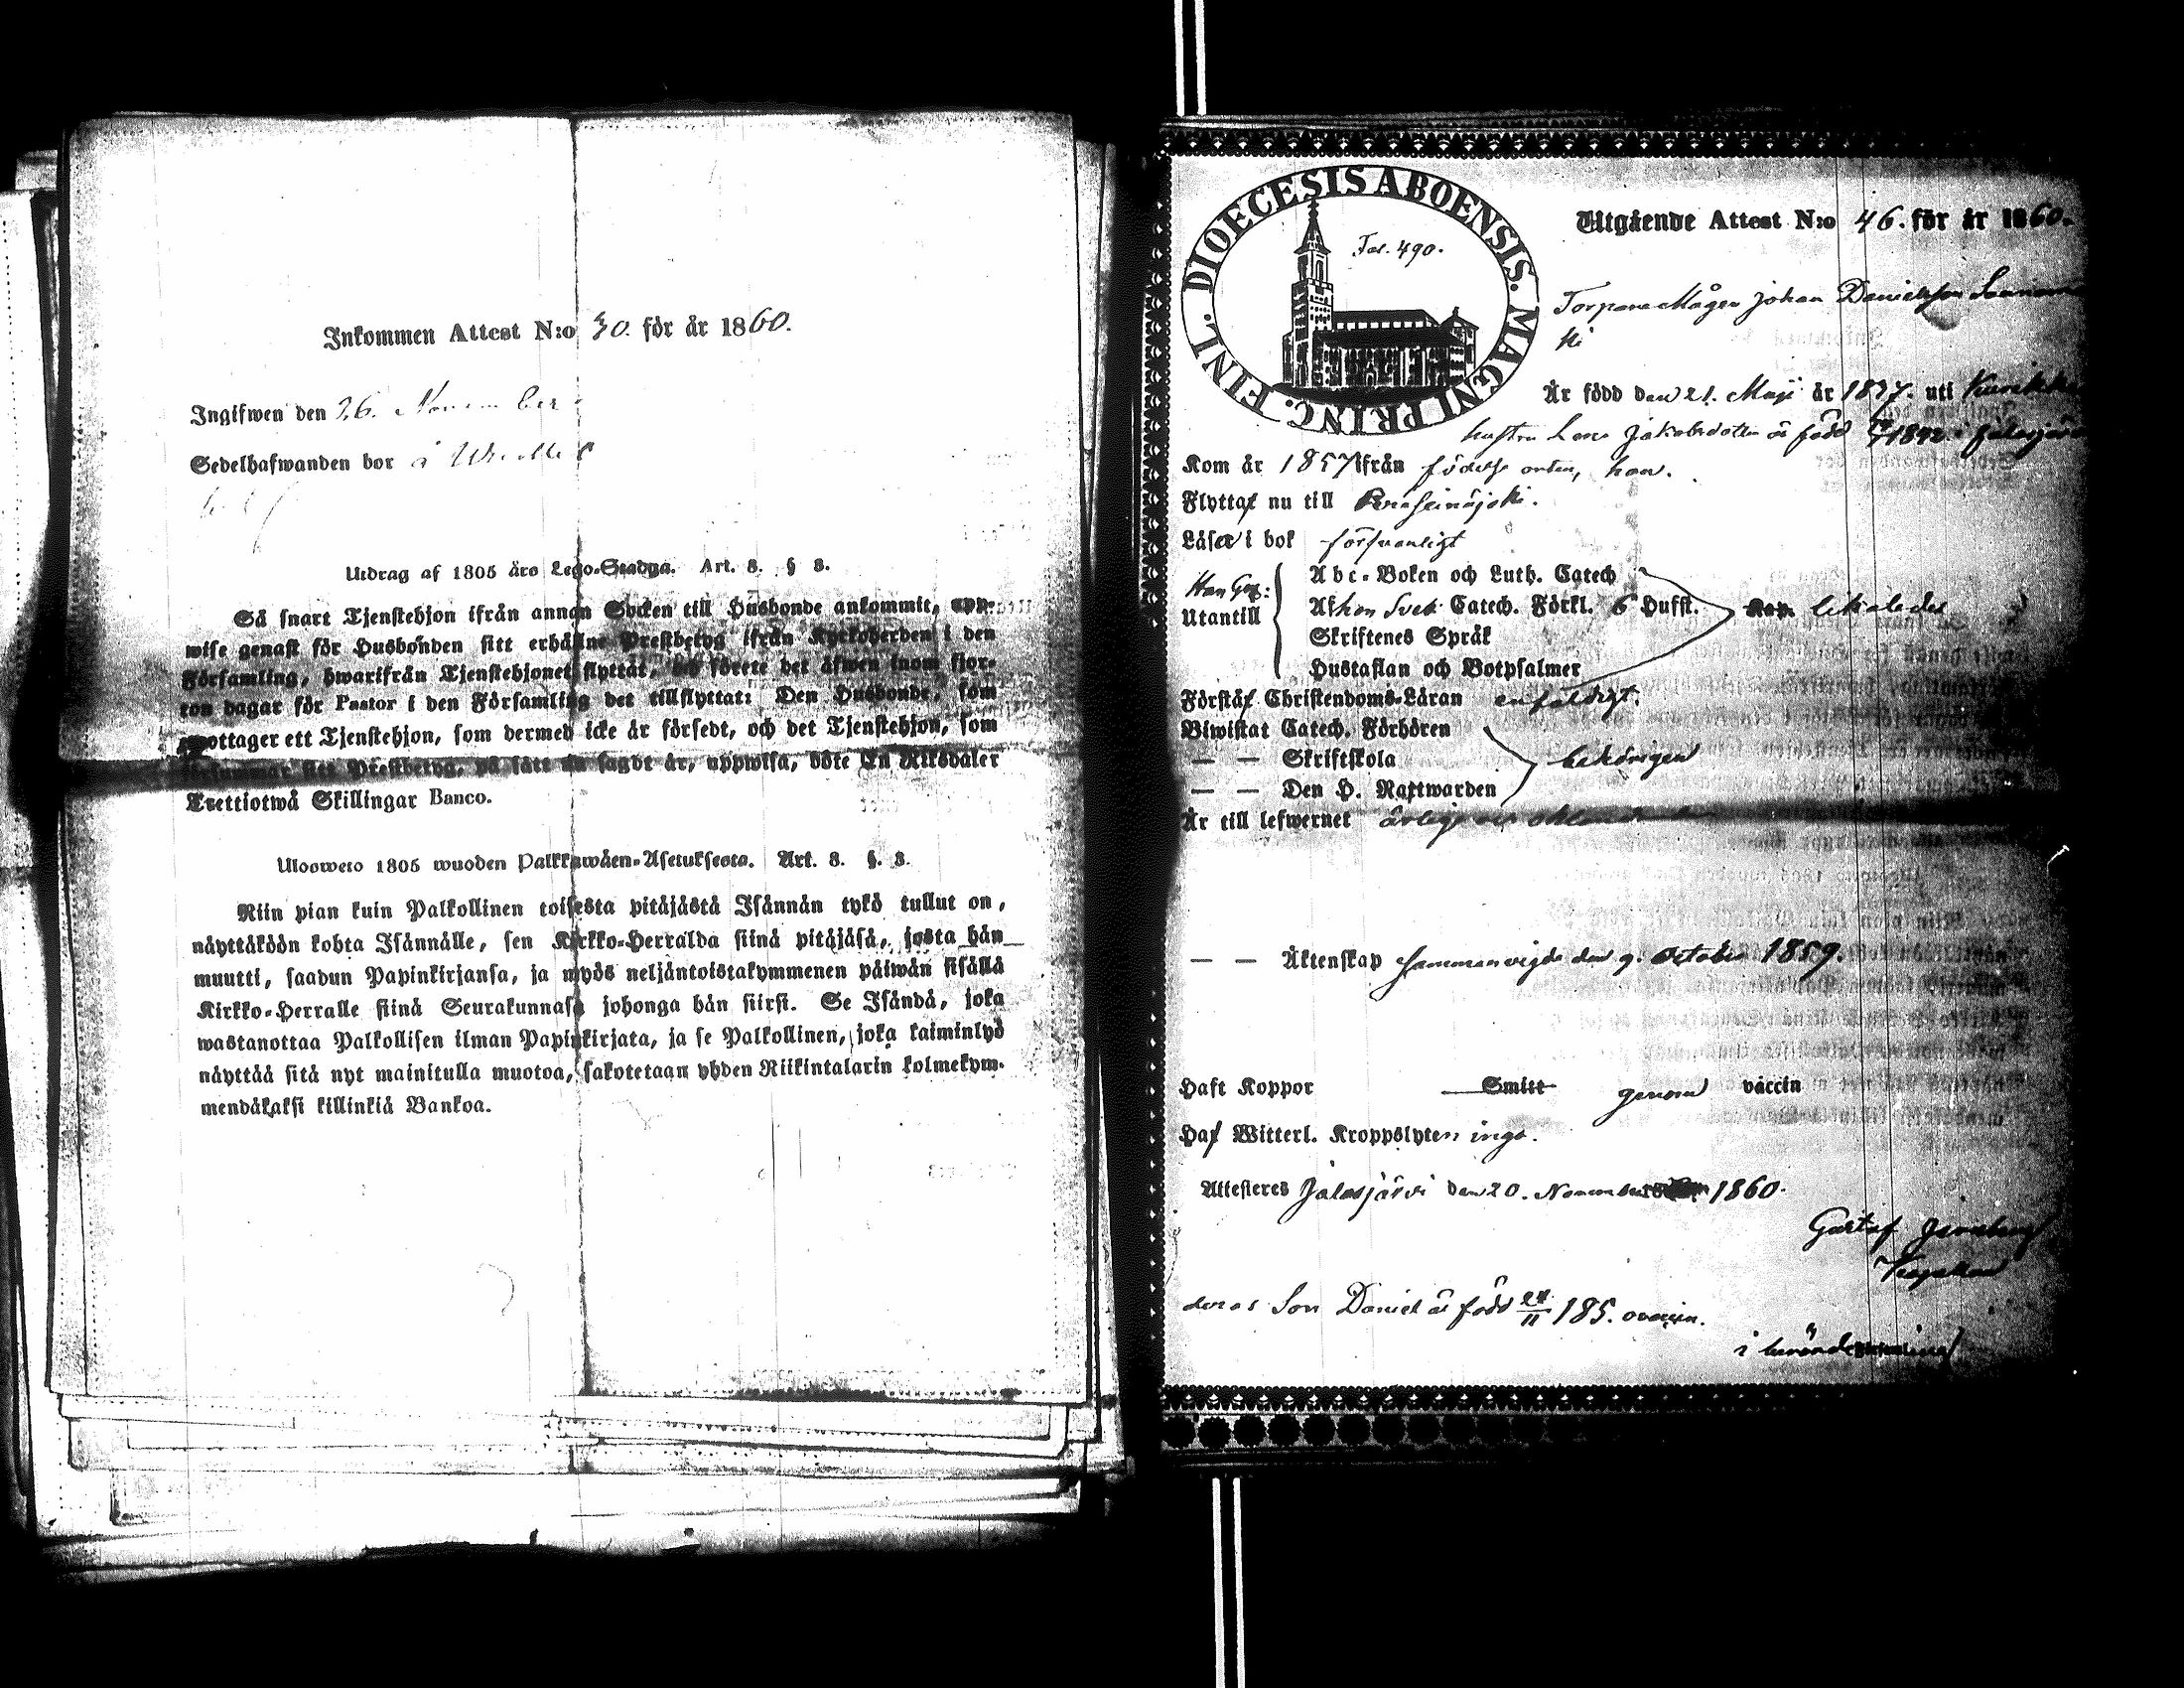 Inkommen Attest N:o 30. för år 1860.
Ingifwen den 26. November
Sedelhafwanden bor å
Utdrag af 1805 års Lego-Stadga. Art. 8. § 3.
Så snart Tjenstehjon ifrån annan Socken till Husbonde ankommit, upp-
wise genast för Husbonden sitt erhållne Prestbetyg ifrån Kyrkoherden i den
Församling, hwarifrån Tjenstehjonet flyttat, och förete det äfwen inom fjor-
ton dagar för Pastor i den Församling det tillflyttat: Den Husbonde, som
emottager ett Tjenstehjon, som dermed icke är försedt, och det Tjenstehjon, som
försummar sitt Prestbetyg, på sätt nu sagdt är, uppwisa, böte En Riksdaler
Trettiotwå Skillingar Banco.
Ulosweto 1805 wuoden Palkkawäen-Asetuksesta. Art. 8. §. 3.
Niin pian kuin Palkollinen toisesta pitäjästä Isännän tykö tullut on,
näyttäköön kohta Isännälle, sen Kirkko-Herralda siinä pitäjäsä, josta hän
muutti, saadun Papinkirjansa, ja myös neljäntoistakymmenen päiwän sisällä
Kirkko-Herralle siinä Seurakunnasa johonga hän siirsi. Se Isändä, joka
wastanottaa Palkollisen ilman Papinkirjata, ja se Palkollinen, joka laiminlyö
näyttää sitä nyt mainitulla muotoa, sakotetaan yhden Riikintalarin kolmekym-
mendäkaksi killinkiä Bankoa.
DIOECESIS ABOENSIS. MAGNI PRINC. FINL.
Fol. 490.
Utgående Attest N:o 46. för år 1860.
Torpare Mågen Johan Danielsson
Är född den 21. Maji år 1837. uti
hustru Lena Jakobsdotter är född 1842. i Jalasjärvi
Kom år 1857 ifrån födelse orten, han.
Flyttar nu till Peräseinäjoki.
Läser i bok försvarligt
Utantill
Abc-Boken och Luth. Catech
Catech. Förkl. 6 Hufst.
Skriftenes Språk
Hustaflan och Botpsalmer
likaledes
Förstår Christendoms-Läran enfaldigt.
Biwistat Catech. Förhören
— — Skriftskola behörigen
— — Den H. Nattwarden
Är till lefwernet
— — Äktenskap sammanvigde den 9. October 1859.
Haft Koppor Smitt genom vaccin
Haf Witterl. Kroppslyten inga.
Attesteras Jalasjärvi den 20. November 1860.
Gustaf
deras Son Daniel är född 24/11 185.